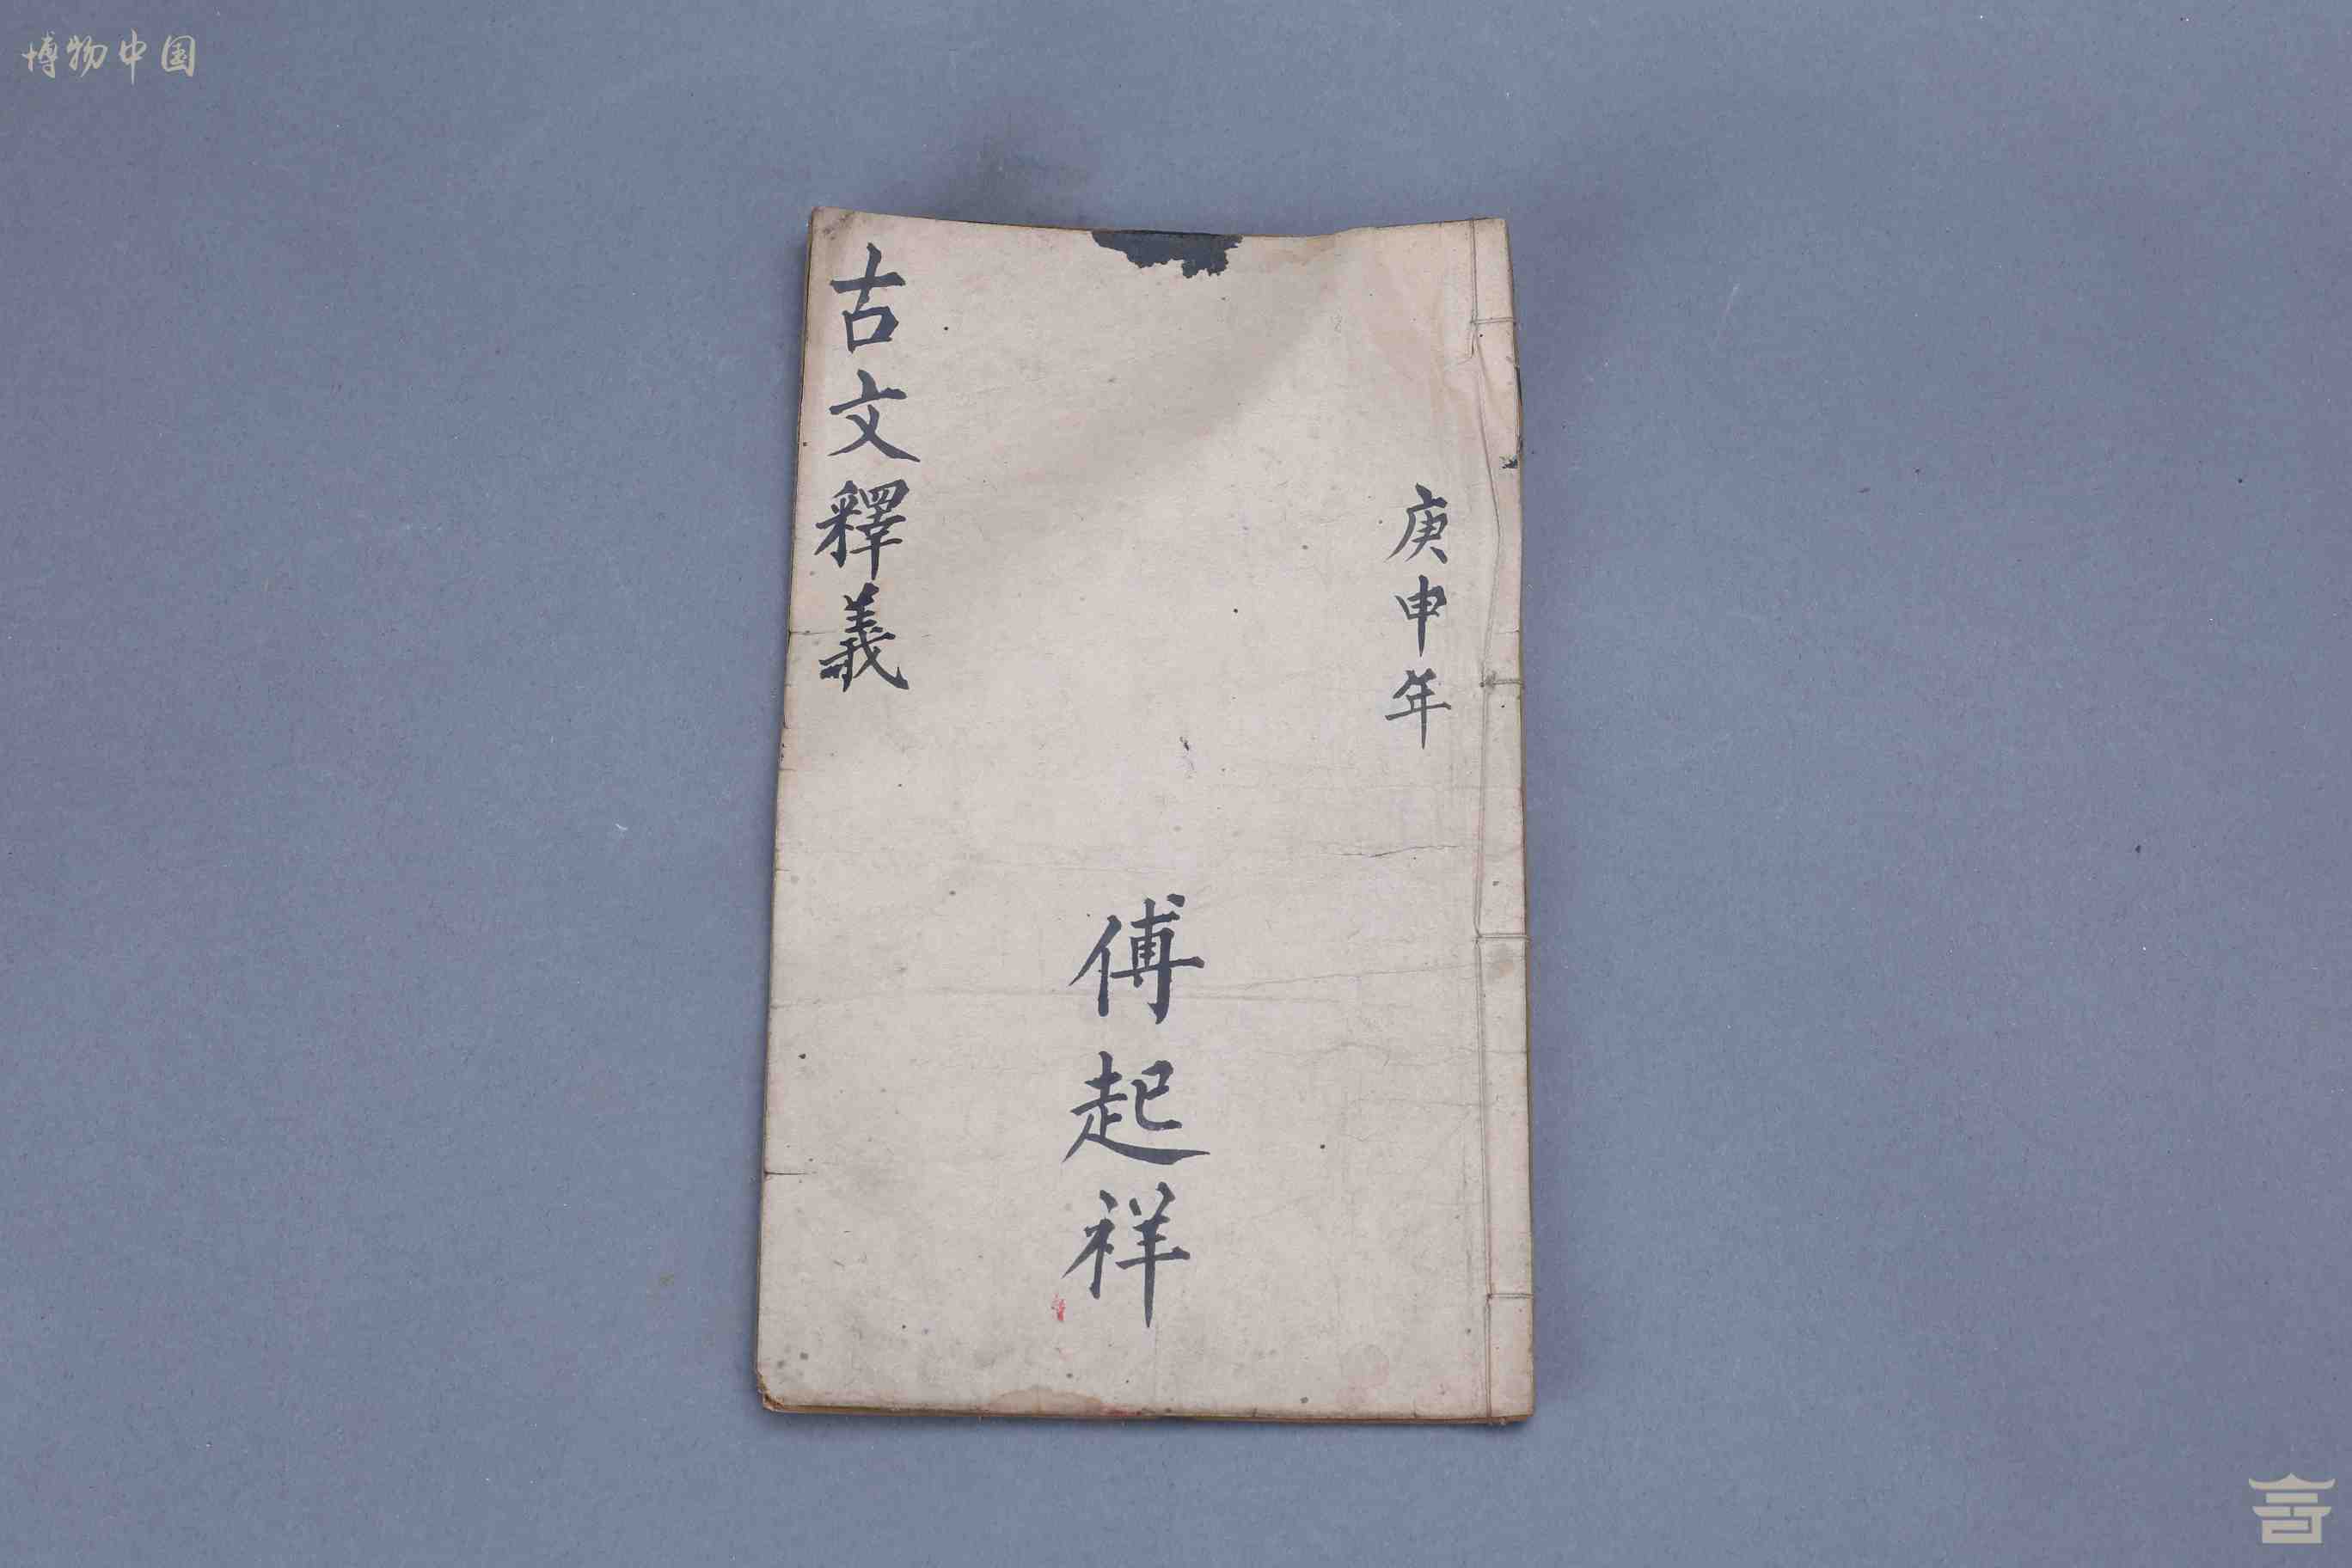 博物中国
庚申年
傅起祥
古文釋義